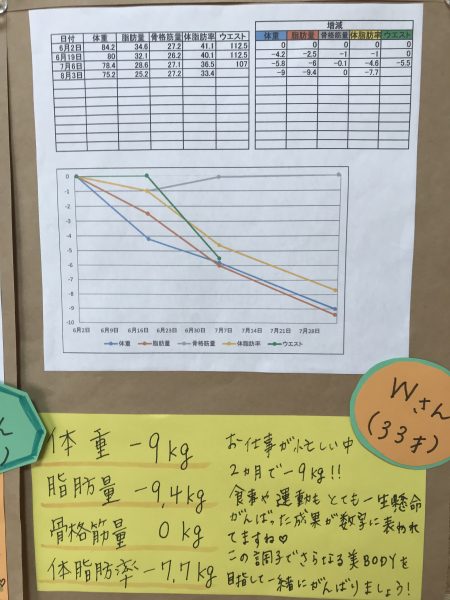 増減
日付 体重 脂肪量 骨格筋量 体脂肪率 ウエスト
6月2日 84.2 34.6 27.2 41.1 112.5
6月19日 80 32.1 26.2 40.1 112.5
7月6日 78.4 28.6 27.1 36.5 107
8月3日 75.2 25.2 27.2 33.4
体重 脂肪量 骨格筋量 体脂肪率 ウエスト
0 0 0 0 0
-4.2 -2.5 -1 -1 0
-5.8 -6 -0.1 -4.6 -5.5
-9 -9.4 0 -7.7
0
-1
-2
-3
-4
-5
-6
-7
-8
-9
-10
6月2日 6月9日 6月16日 6月23日 6月30日 7月7日 7月14日 7月21日 7月28日
体重 脂肪量 骨格筋量 体脂肪率 ウエスト
Wさん
(33才)
体重 -9kg
脂肪量 -9,4kg
骨格筋量 0kg
体脂肪率 -7,7kg
お仕事が忙しい中
2ヵ月で-9kg!!
食事や運動もとても一生懸命
がんばった成果が数字に表われ
てますね♡
この調子でさらなる美BODYを
目指して一緒にがんばりましょう!
さん